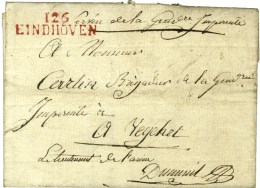 126
EINDHOVEN
Service de la Gendre Impériale
A Monsieur
Cartier Brigadier de la Gendrie
Impériale à
A Veghel
Le Lieutenant de l'arme
Dumenil